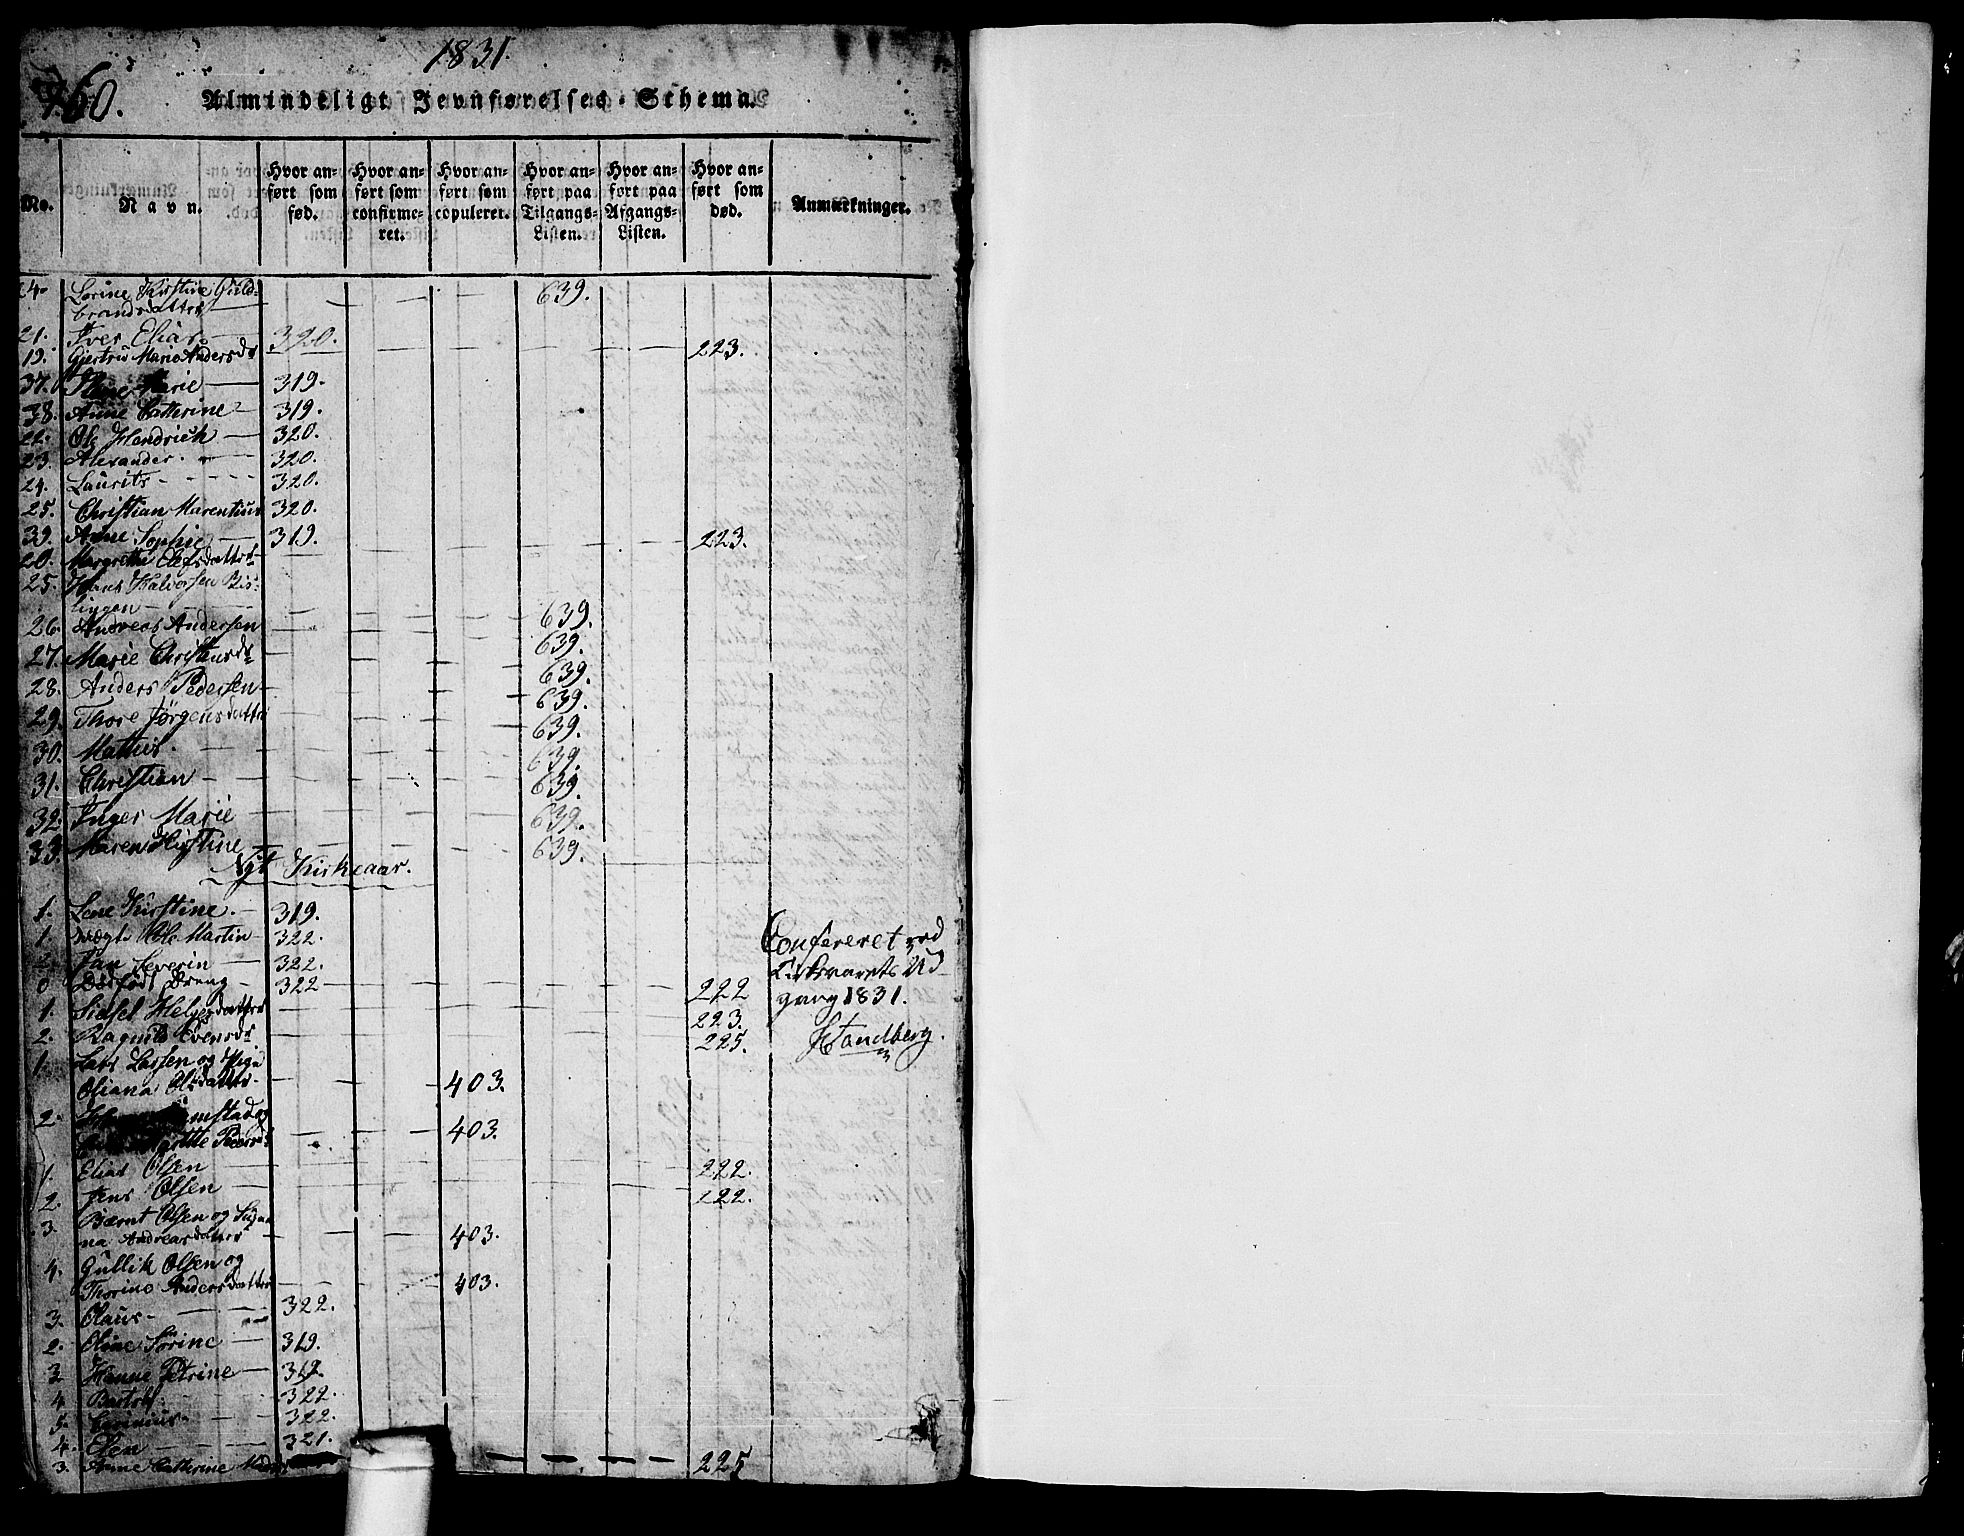 1831.
760.
Almindeligt Jevnførelses-Schema.
No. Navn. Hvor anført som fød. Hvor anført som confirmeret. Hvor anført som copuleret. Hvor anført paa Tilgangs-Listen. Hvor anført paa Afgangs-Listen. Hvor anført som død. Anmærkninger.
24. Lorine Kirstine Guld-
brandsdatter — — — 639.
21. Iver Elias 320.
19. Giertru Marie Andersdr — — 223.
37. Marie — 319.
38. Anne Catherine — 319.
22. Ole Hendrich — 320.
23. Alexander. — 320.
24. Laurits - - - - 320.
25. Christian Marentius 320.
39. Anne Sophie — 319.
20. Margrethe Olefsdatter — — 223.
25. Hans Halvorsen Bis-
lingen — — — 639.
26. Andreas Andersen — — 639.
27. Marie Christensdr — — 639.
28. Anders Pedersen — — 639.
29. Thore Jørgensdatter — — 639.
30. Mathis. — — — 639.
31. Christian — — — 639.
32. Inger Marie — — — 639.
33. Maren Kirstine — — — 639.
Nyt Kirkeaar.
1. Lene Kirstine. — 319.
1. Ole Martin — 322.
2. Jan Severin — 322.
0 Dødfødt Dreng — 322 — — 222
1. Sidsel Helgesdatter — — 223.
2. Ragnild Evensdr — — 225.
Confereret ved
Kirkeaarets Ud-
gang 1831.
HTandberg.
1. Lars Larsen og
Oliana Olsdatter — — 403.
2.
Pedersdr — — 403.
1. Elias Olsen — — — 222.
2. Jens Olsen — — — 222.
3. Bernt Olsen og Sig-
na Andreasdatter — — 403.
4. Gullik Olsen og
Thorine Andersdatter — — 403.
3. Olaus - — — 322.
2. Oline Sørine — 319.
3 Hanne Petrine — 319.
4 — — 322.
5. — — 322.
4. — — — 321.
3. Anne Catherine — — — 225